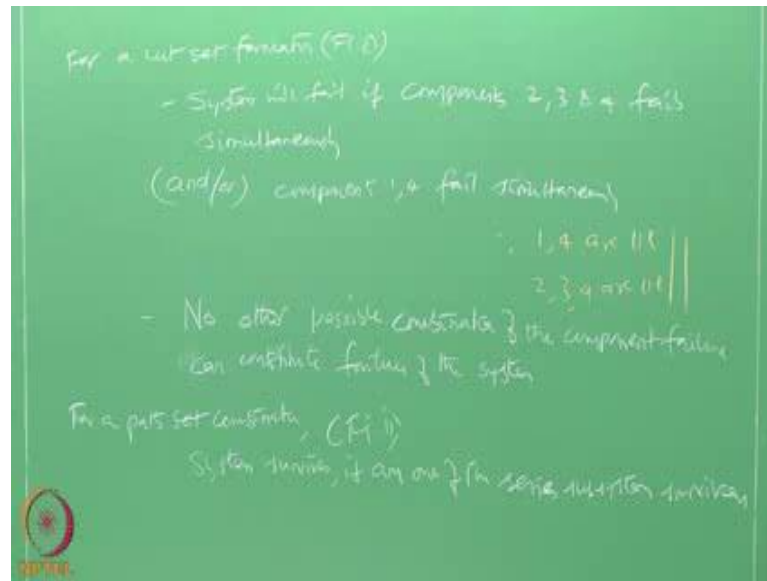 For a cut set formation (Fi 0)
- System will fail if components 2, 3 & 4 fails
simultaneously
(and/or) component 1,4 fail simultaneously
∴ 1,4 are
2,3,4 are
- No other possible combination of the component failure
can constitute failure of the system
For a path set combination, (Fi 1)
System survives, if any one of the series subsystem survives
NPTEL